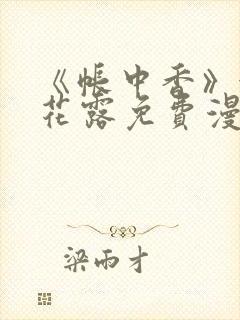 《帐中香》
花露免费漫
梁雨才